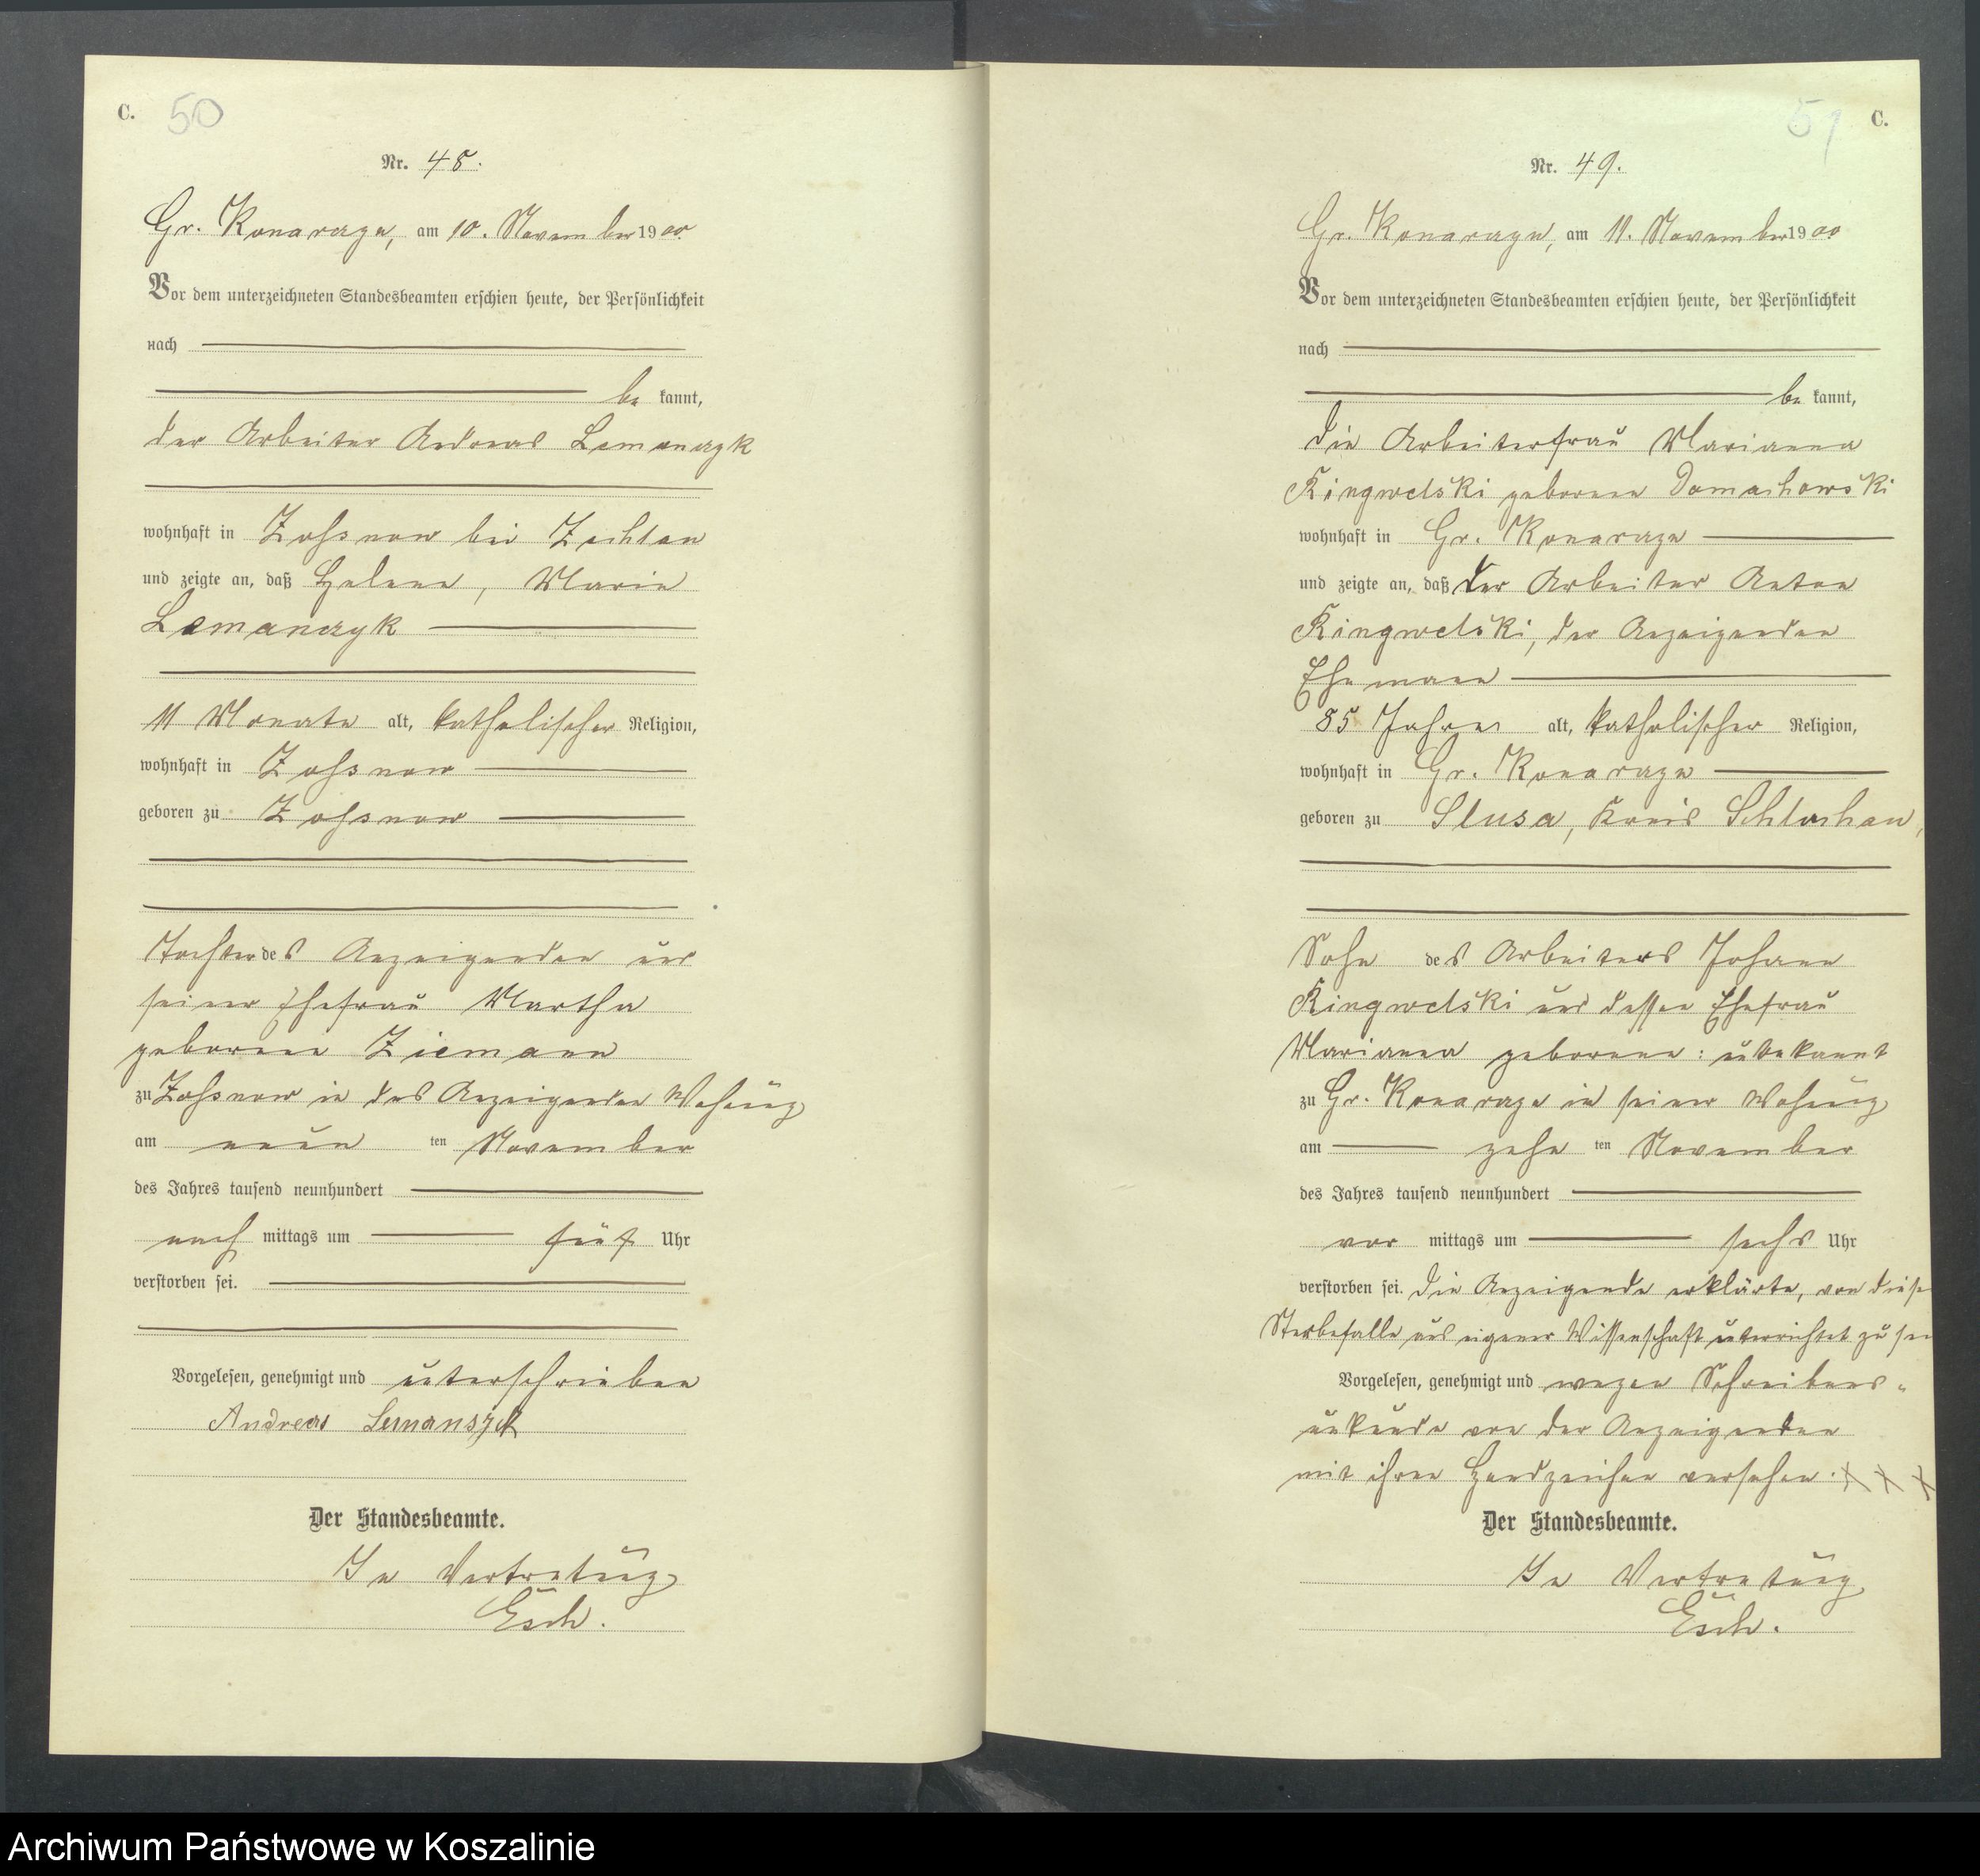 C. 50
Nr. 48.
Gr. Konarzyn, am 10. November 1900.
Vor dem unterzeichneten Standesbeamten erschien heute, der Persönlichkeit
nach
be kannt,
der Arbeiter Andreas Lemanczyk
wohnhaft in Zossnow bei Zechlau
und zeigte an, daß Helene, Marie
Lemanczyk
11 Monate alt, katholischer Religion,
wohnhaft in Zossnow
geboren zu Zossnow
Tochter des Anzeigenden und
seiner Ehefrau Martha
geborene Ziemann
zu Zossnow in des Anzeigenden Wohnung
am neun ten November
des Jahres tausend neunhundert
nach mittags um fünf Uhr
verstorben sei.
Vorgelesen, genehmigt und unterschrieben
Andreas Lemanszyk
Der Standesbeamte.
In Vertretung
Esch.
51 C.
Nr. 49.
Gr. Konarzyn, am 11. November 1900.
Vor dem unterzeichneten Standesbeamten erschien heute, der Persönlichkeit
nach
be kannt,
die Arbeiterfrau Marianna
Kingwelski geborene Domachowski
wohnhaft in Gr. Konarzyn
und zeigte an, daß der Arbeiter Anton
Kingwelski, der Anzeigenden
Ehemann
85 Jahre alt, katholischer Religion,
wohnhaft in Gr. Konarzyn
geboren zu Slusa, Kreis Schlochau,
Sohn des Arbeiters Johann
Kingwelski und dessen Ehefrau
Marianna geborene: unbekannt
zu Gr. Konarzyn in seiner Wohnung
am zehn ten November
des Jahres tausend neunhundert
vor mittags um sechs Uhr
verstorben sei. Die Anzeigende erklärte, von diese
Sterbefalle aus eigener Wissenschaft unterrichtet zu sein
Vorgelesen, genehmigt und wegen Schreibens-
unkunde von der Anzeigenden
mit ihren Handzeichen versehen. X X X
Der Standesbeamte.
In Vertretung
Esch.
Archiwum Państwowe w Koszalinie